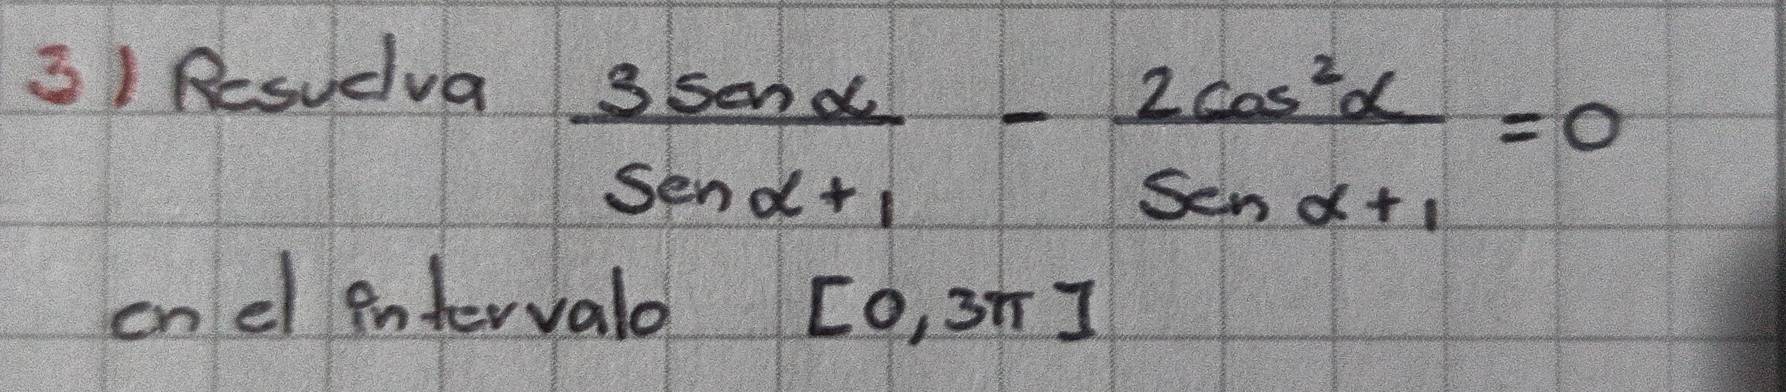 3) Resuelva (3 sen α)/(sen α + 1) - (2 cos²α)/(sen α + 1) = 0
en el intervalo [0, 3π]